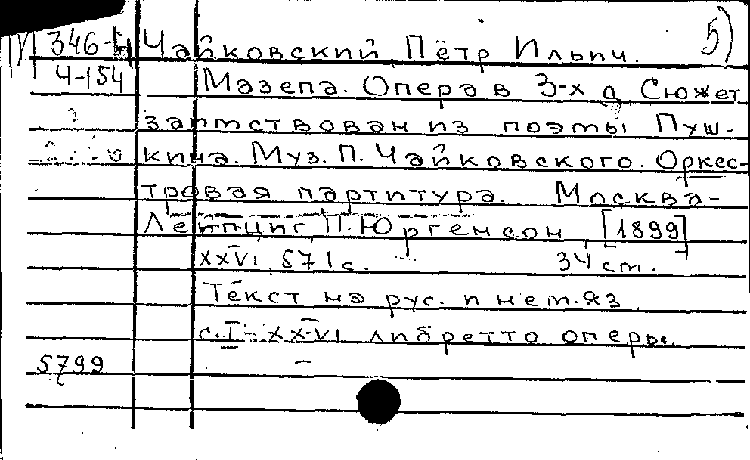 5)
М 346-4 Чайковский, Пётр Ильич.
Ч-154 Мазепа. Опера в 3-х д. Сюжет
заимствован из поэмы Пуш-
кина. Муз. П. Чайковского. Оркес-
тровая партитура. Москва-
Лейпциг, П. Юргенсон, [1899]
XXVI, 571 с. 34 см.
Текст на рус. и нем. яз.
с. I-XXVI либретто оперы.
5799